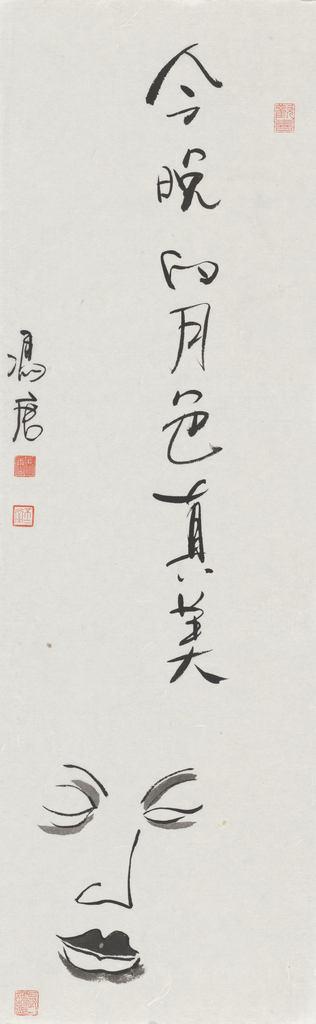 今晚的月色真美
冯唐